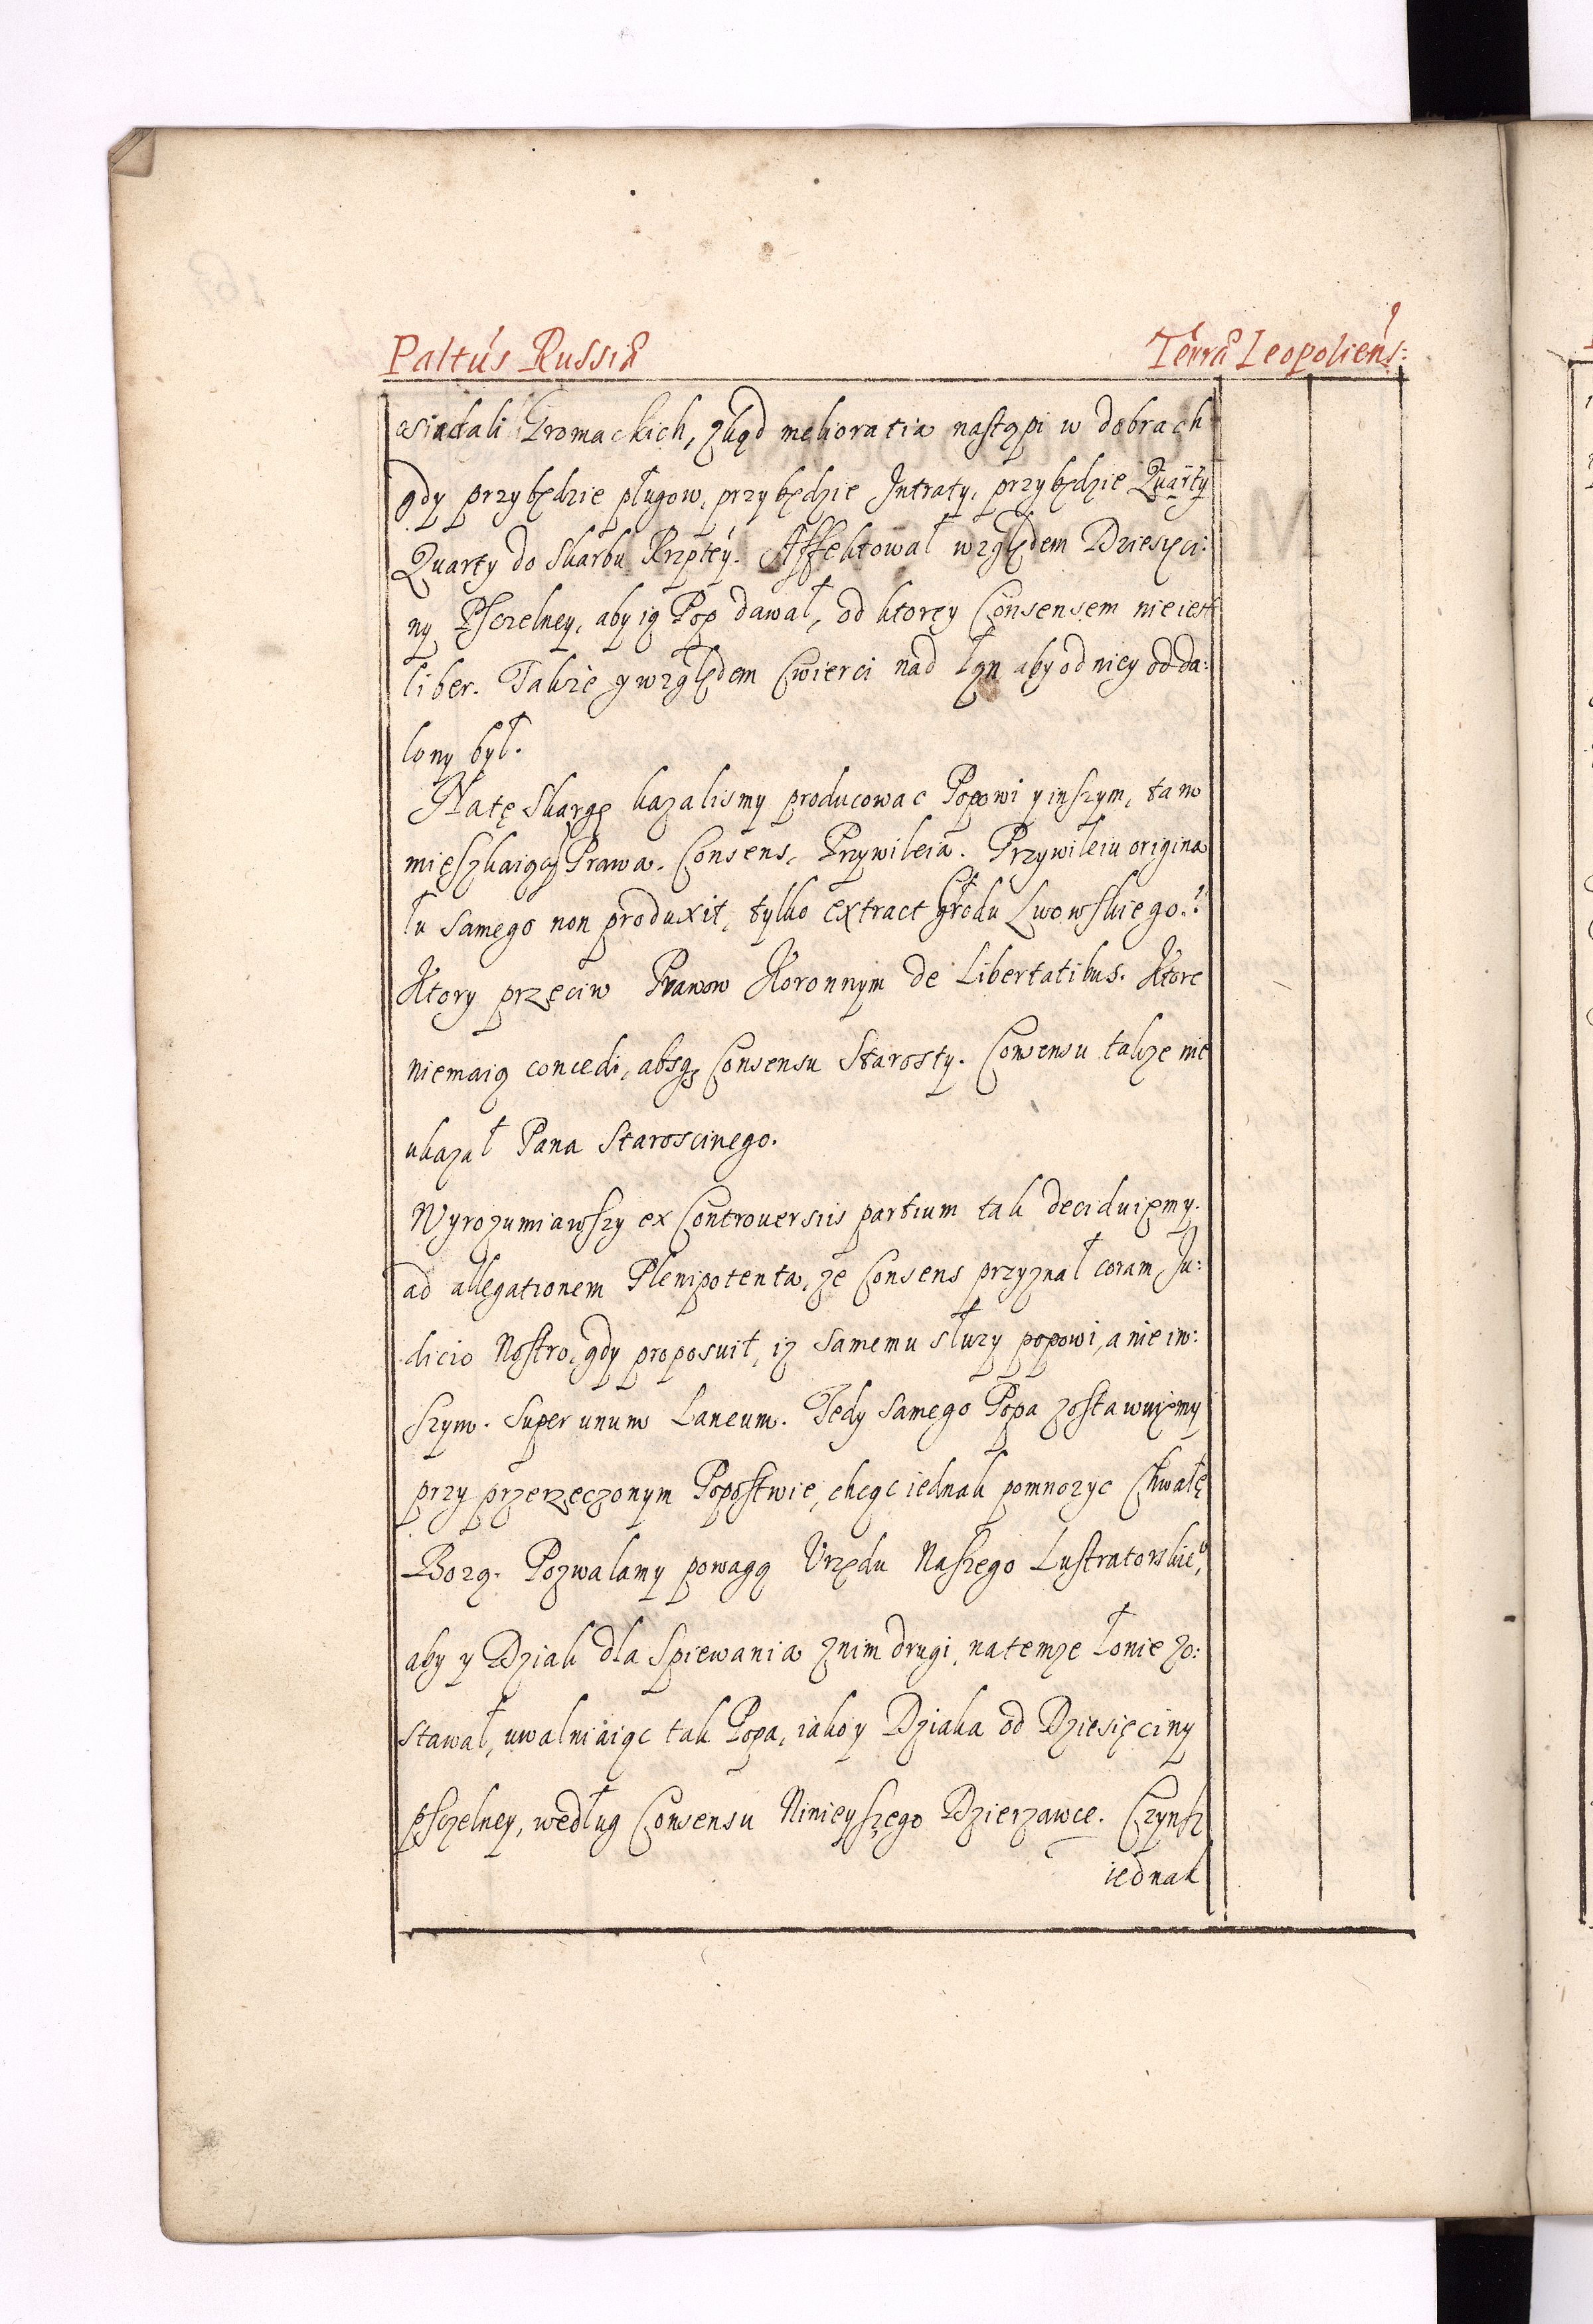 Paltus Russiæ Terræ Leopoliens:
osiadali Gromackich, zkąd melioratia nastąpi w dobrach
gdy przybędzie pługow, przybędzie Jntraty, przybędzie Quarty
Quarty do Skarbu Rzptey. Affektował względem Dziesięci:
ny Pszczelney, aby ią Pop dawał, od ktorey Consensem nie iest
liber. Także y względem Cwierci nad łąn aby od niey odda:
lony był.
Na tę Skargę kazalismy producowac Popowi y inszym, tam
mięszkaiącÿ Prawa, Consens, Przywileia. Przywileiu origina
łu samego non produxit, tylko extract Grodu Lwowskiego.
Ktory przeciw Prawow Koronnym de Libertatibus. Ktore
niemaią concedi, absq; Consensu Starosty. Consensu takze nie
ukazał Pana Staroscinego.
Wyrozumiawszy ex Controversiis partium tak deciduięmy.
ad allegationem Plenipotenta, ze Consens przyznał coram Ju:
dicio Nostro, gdy proposuit, iz samemu słuzy popowi, a nie in:
szym. Super unum Laneum. Tedy samego Popa zostawuięmy
przy przerzeczonym Popostwie, chcąc iednak pomnozyc Chwałę
Bozą. Pozwalamy powagą Vrzędu Naszego Lustratorskie,
aby y Dziak dla Spiewania z nim drugi, na temze Łonie zo:
stawał, uwalniaiąc tak Popa, iako y Dziaka od Dziesięciny
pszczelney, według Consensu Ninieyszego Dzierzawce. Czynsz
iednak